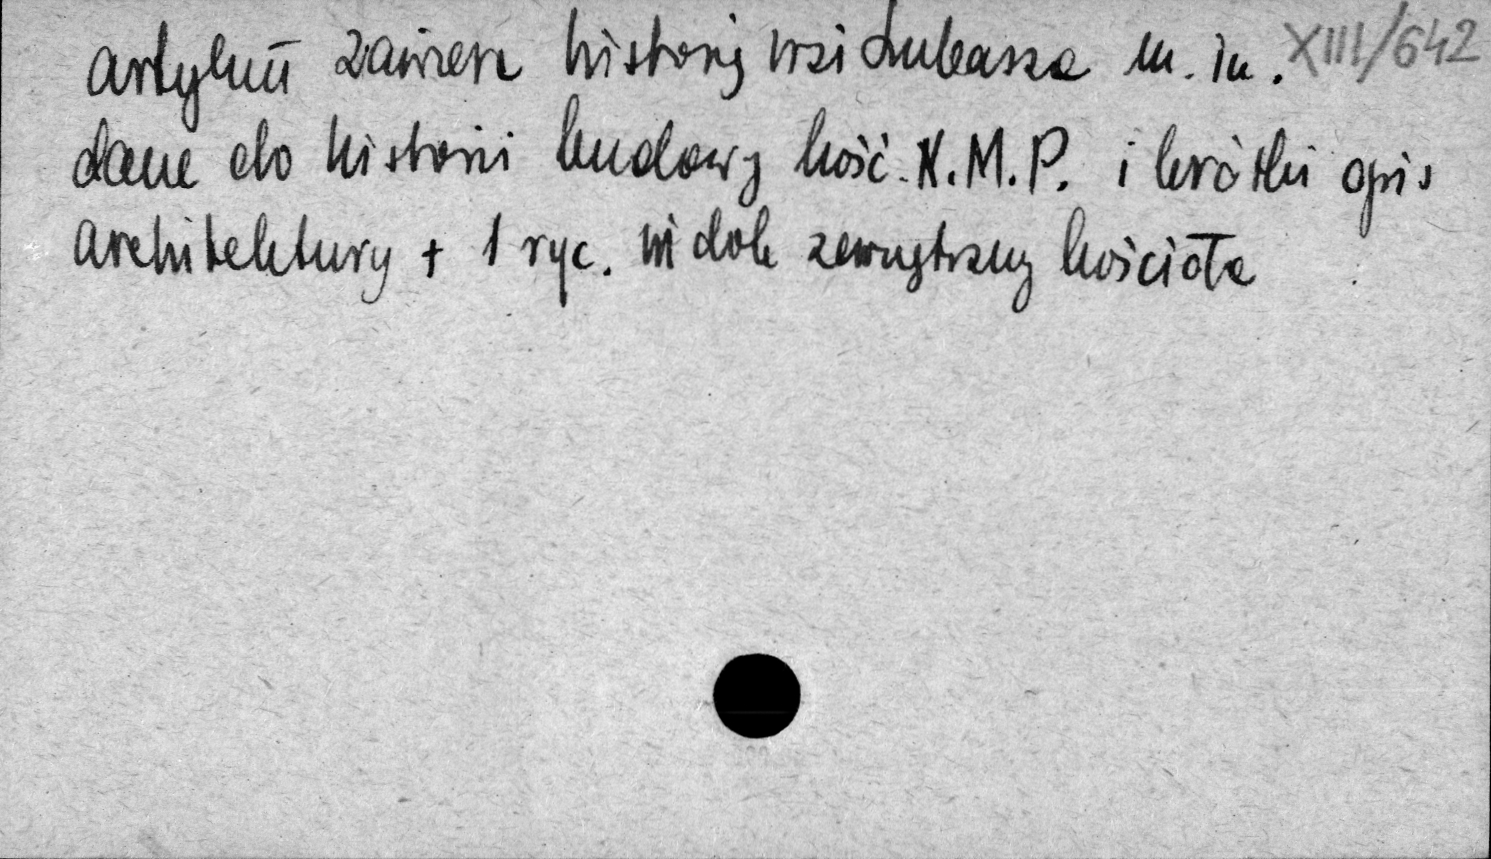 artykuł zawiera historię wsi Lubasza m. in. XIII/642
dane do historii budowy kość. N.M.P. i krótki opis
architektury + 1 ryc. widok zewnętrzny kościoła